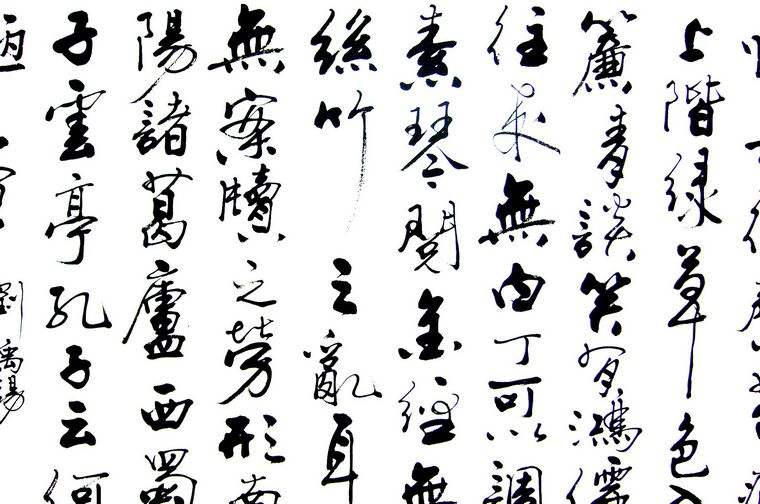 上階綠草色入
簾青談笑有鴻儒
往来無白丁可以調
素琴閱金經無
絲竹之亂耳
無案牘之勞形南
陽諸葛廬西蜀
子雲亭孔子云何
劉禹錫